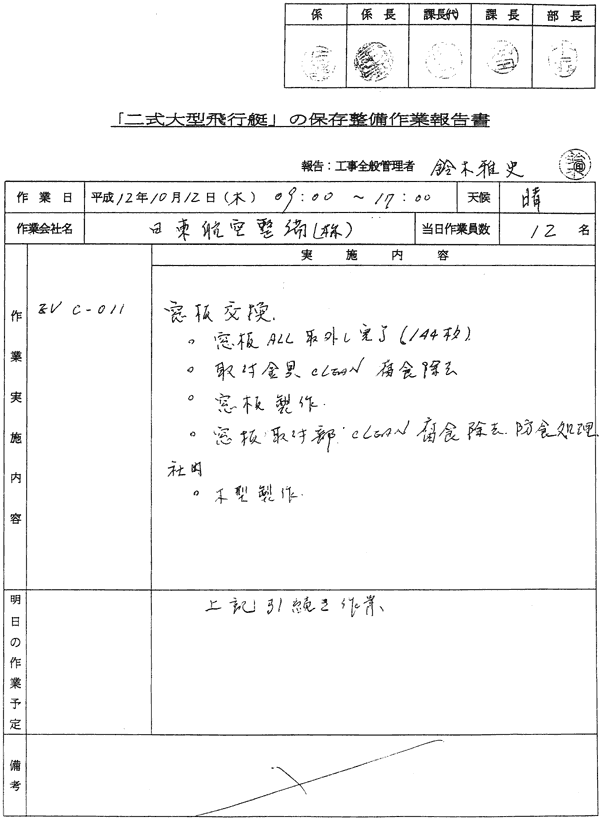 係 係長 課長代 課長 部長
「二式大型飛行艇」の保存整備作業報告書
報告：工事全般管理者 鈴木雅史
作業日 平成12年10月12日(木) 09:00 ～ 17:00 天候 晴
作業会社名 日東航空整備(株) 当日作業員数 12 名
実施内容
作業実施内容
EV C-011
窓板交換.
。窓板 ALL 取外し完了 (144枚)
。取付金具 CLEAN 腐食除去
。窓板製作.
。窓板取付部 CLEAN 腐食除去. 防食処理
社内
。木型製作.
明日の作業予定
上記引続き作業、
備考